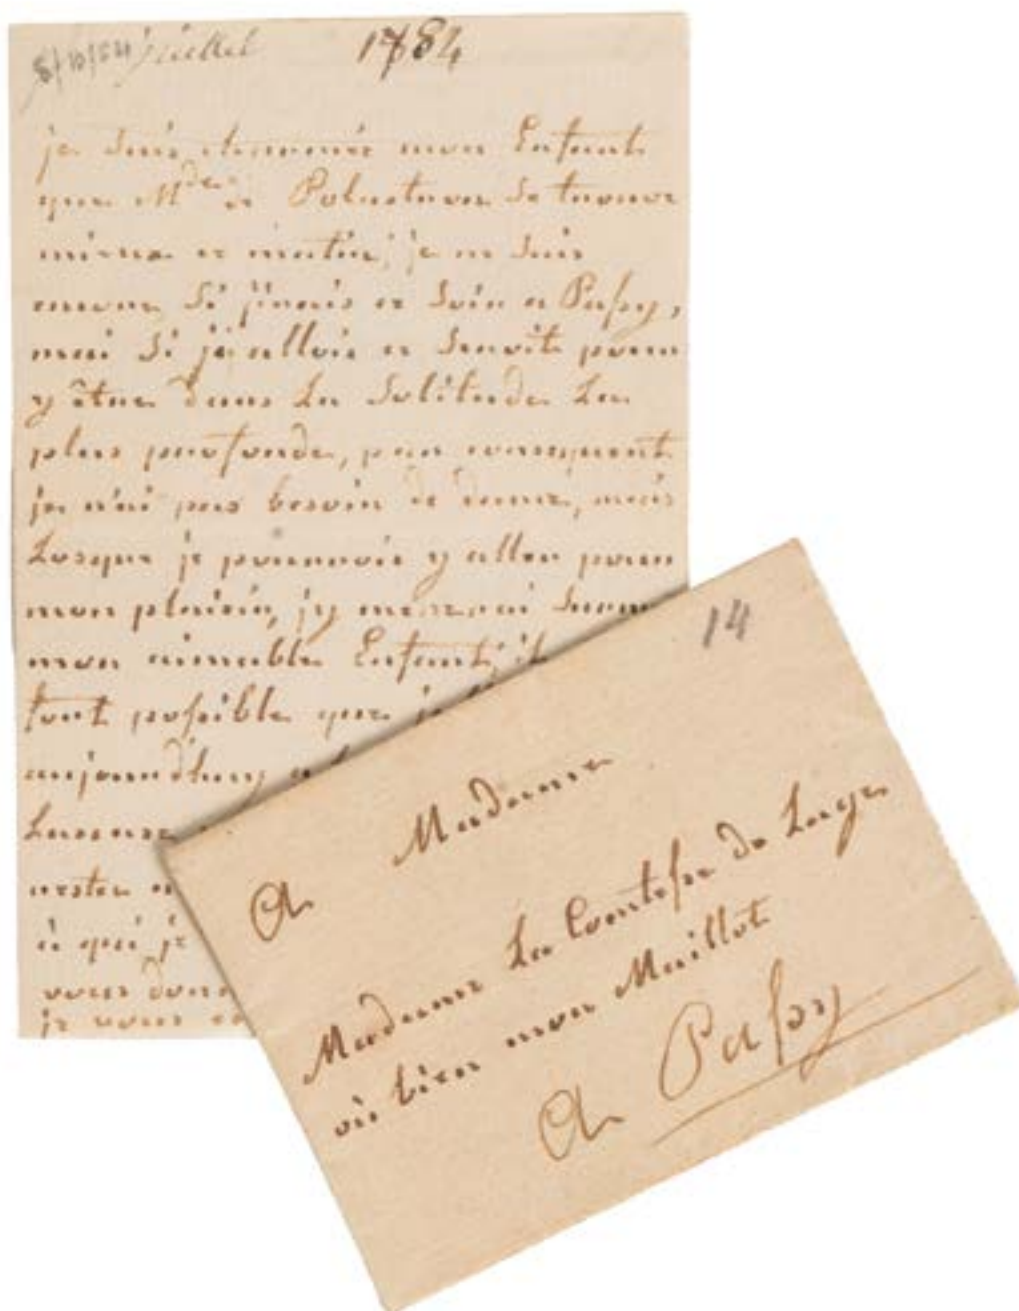 8/10/84 juillet 1784
je suis charmée mon Enfant
que Md de Polastron se trouve
mieux ce matin, je ne sais
encore si j'irais ce soir a Passy,
mai si j'y allois ce seroit pour
y être dans La Solitude La
plus profonde, par consequent
je n'ai pas besoin de dame, mais
Lorsque je pourrois y aller pour
mon plaisir, j'y menerai
mon aimable Enfant, il
tout possible que
aujourd'huy

rester
à qui je
vous
je vous
14
A Madame
Madame La Comtesse de Lage
où bien mon Maillot
A Passy